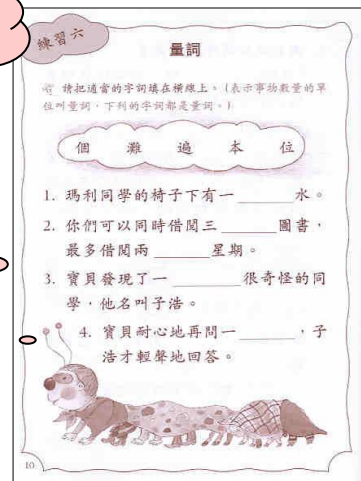 練習六
量詞
請把適當的字詞填在橫線上。(表示事物數量的單
位叫量詞,下列的字詞都是量詞。)
個 灘 遍 本 位
1. 瑪利同學的椅子下有一______水。
2. 你們可以同時借閱三______圖書,
最多借閱兩______星期。
3. 寶貝發現了一______很奇怪的同
學,他名叫子浩。
4. 寶貝耐心地再問一______,子
浩才輕聲地回答。
10